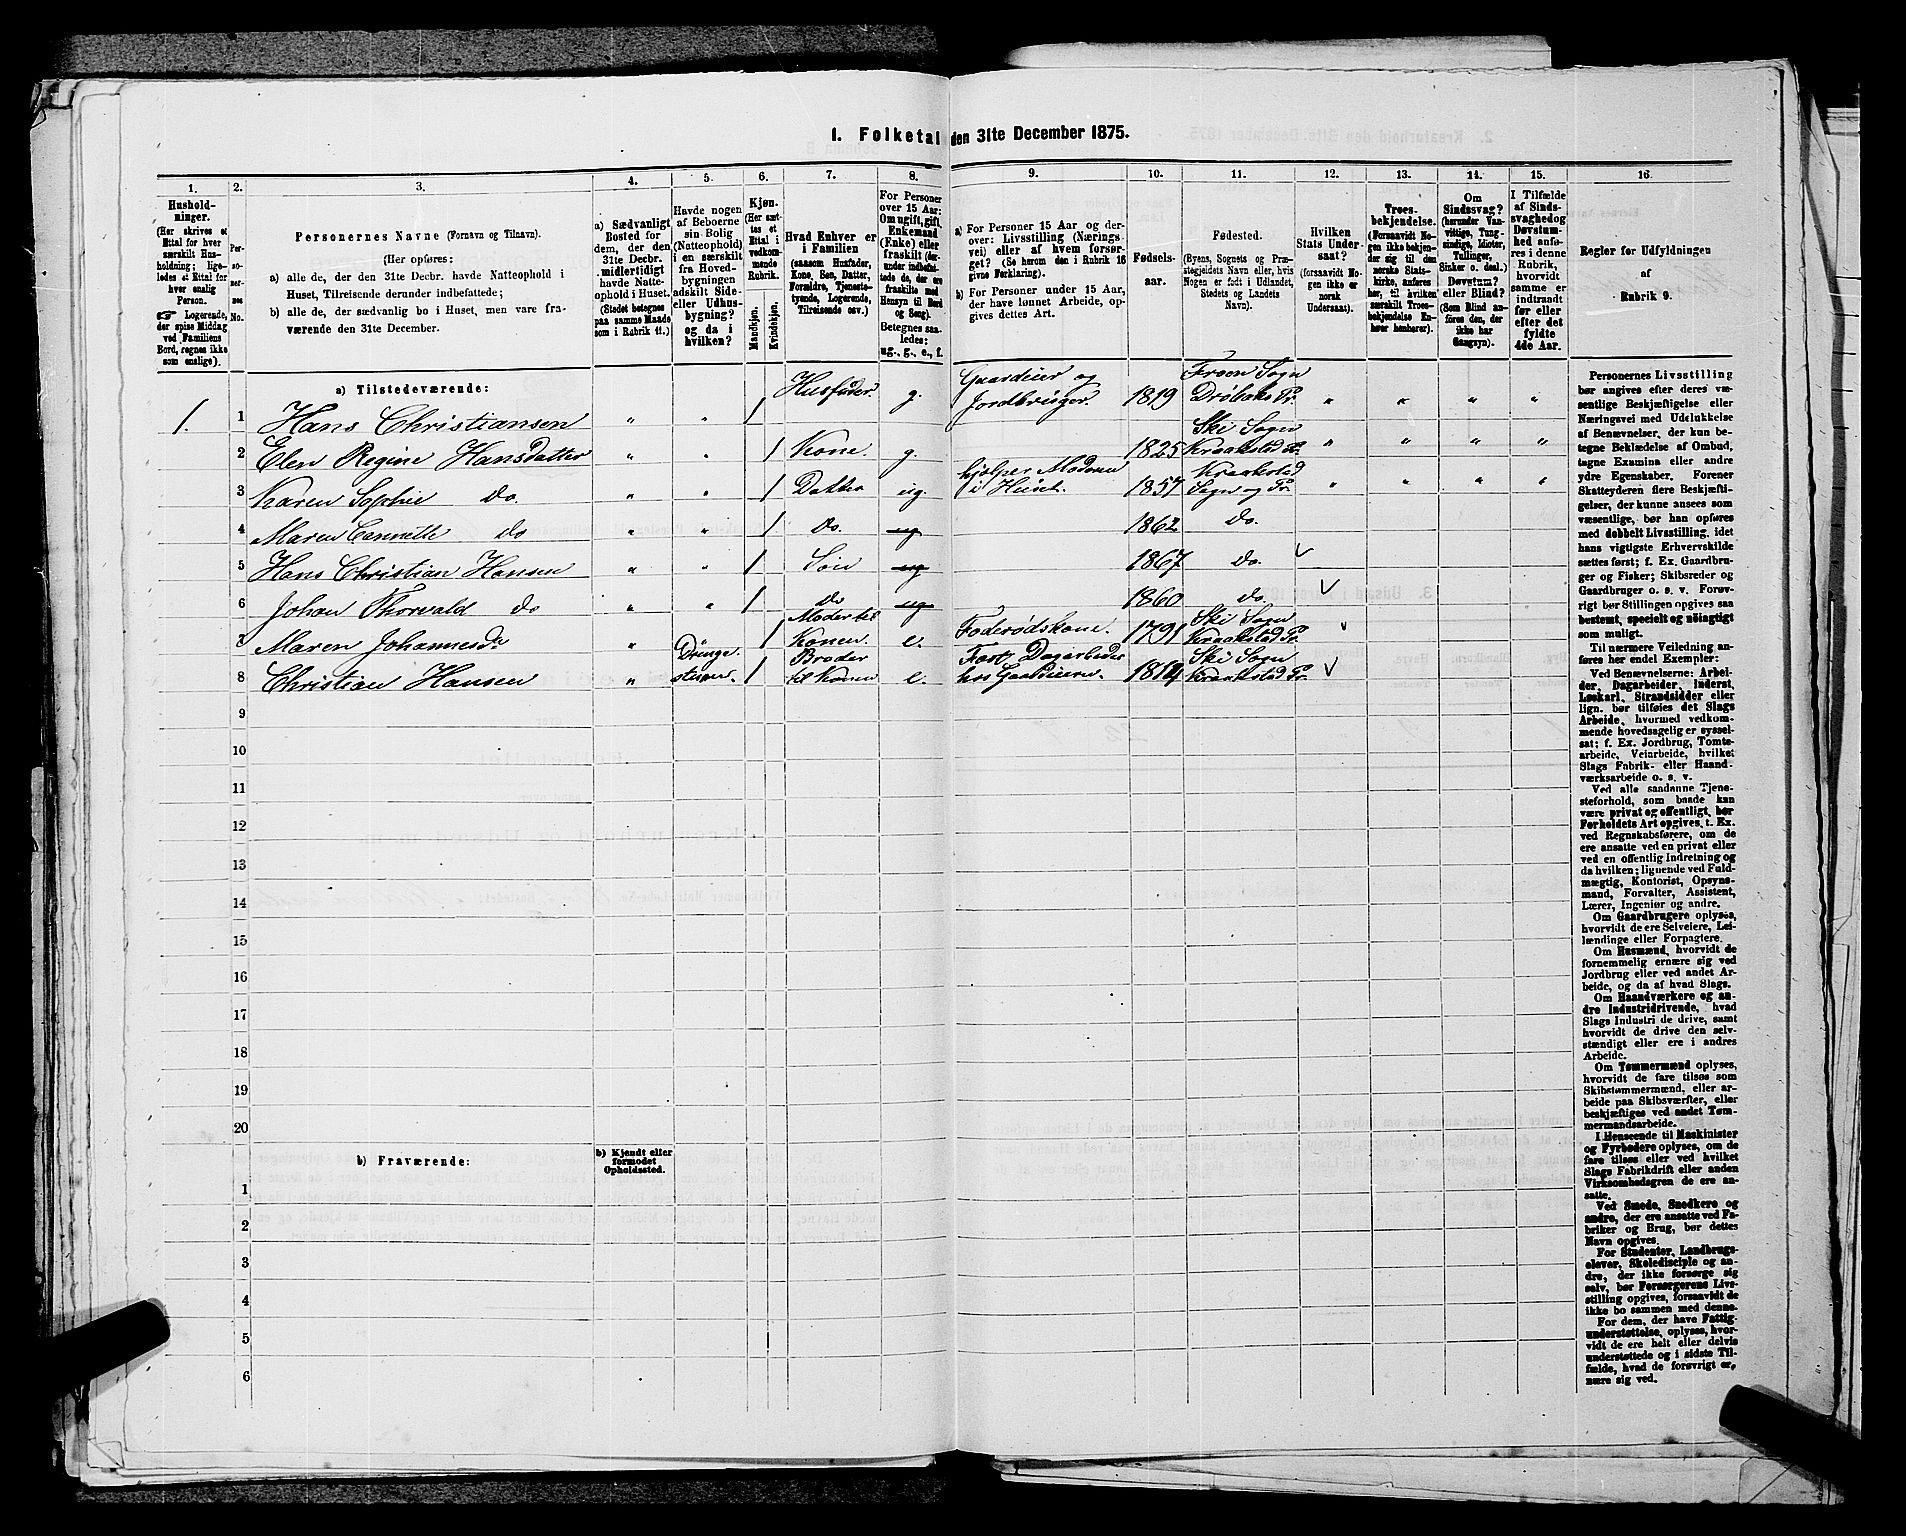 1. Folketal den 31te December 1875.
1. 2. 3. 4. 5. 6. 7. 8. 9. 10. 11. 12. 13. 14. 15. 16.
Husholdninger.
(Her skrives et Ettal for hver særskilt Husholdning; ligeledes et Ettal for hver enslig Person.
☞ Logerende, der spise Middag ved Familiens Bord, regnes ikke som enslige).
Personernes No.
Personernes Navne (Fornavn og Tilnavn).
(Her opføres:)
a) alle de, der den 31te Decbr. havde Natteophold i
Huset, Tilreisende derunder indbefattede;
b) alle de, der sædvanlig bo i Huset, men vare fra-
værende den 31te December.
a) Sædvanligt
Bosted for
dem, der den
31te Decbr.
midlertidigt
havde Natte-
ophold i Huset.
(Stedet betegnes
paa samme Maade
som i Rubrik 11.)
Havde nogen
af Beboerne
sin Bolig
(Natteophold)
i en særskilt
fra Hoved-
bygningen
adskilt Side-
eller Udhus-
bygning?
og da i
hvilken?
Kjøn.
(Her sæt-
tes et
Ettal i
vedkom-
mende
Rubrik.
Mandkjøn.
Kvindekjøn.
Hvad Enhver er
i Familien
(saasom Husfader,
Kone, Søn, Datter,
Forældre, Tjeneste-
tyende, Logerende,
Tilreisende osv.)
For Personer
over 15 Aar:
Om ugift, gift,
Enkemand
(Enke) eller
fraskilt (der-
under indbefat-
tede de, der ere
fraskilte med
Hensyn til Bord
og Seng).
Betegnes saa-
ledes:
ug., g., e., f.
a) For Personer 15 Aar og der-
over: Livsstilling (Nærings-
vei) eller af hvem forsør-
get? (Se herom den i Rubrik 16
givne Forklaring).
b) For Personer under 15 Aar,
der have lønnet Arbeide, op-
gives dettes Art.
Fødsels-
aar.
Fødested.
(Byens, Sognets og Præ-
stegjeldets Navn eller, hvis
Nogen er født i Udlandet,
Stedets og Landets
Navn).
Hvilken
Stats Under-
saat?
(forsaavidt No-
gen ikke er
norsk
Undersaat).
Troes-
bekjendelse.
(Forsaavidt No-
gen ikke bekjen-
der sig til den
norske Stats-
kirke, anføres
her, til hvilken
særskilt Troes-
bekjendelse En-
hver henhører).
Om
Sindssvag?
(herunder Van-
vittige, Tung-
sindige, Idioter,
Tullinger,
Sinker o. desl.)
Døvstum?
eller Blind?
(Som Blind an-
føres den, der
ikke har
Gangsyn).
I Tilfælde
af Sinds-
svaghed og
Døvstum-
hed anfø-
res i denne
Rubrik,
hvorvidt
samme er
indtraadt
før eller
efter det
fyldte
4de Aar.
Regler for Udfyldningen
af
Rubrik 9.
a) Tilstedeværende:
1. 1 Hans Christiansen „ „ 1 Husfader. g. Gaardeier og Jordbruger. 1819 Froen Sogn Drøbaks Pr. „ „ „ „
2 Elen Regine Hansdatter „ „ 1 Kone. g. 1825 Ski Sogn Kraakstad Pr. „ „ „ „
3 Karen Sophie do. „ „ 1 Datter ug. hjelper Moderen i Huset. 1857 Kraakstad Sogn og Pr. „ „ „ „
4 Maren do „ „ 1 do. ug 1862 do.
5 Hans Christian Hansen „ „ 1 Søn ug 1867 do. ✓
6 Johan Thorvald do „ „ 1 do ug 1860 do. ✓
7 Maren Johannesd. „ 1 Moder til Konen. e. Foderødskone. 1791 Ski Sogn Kraakstad Pr. ✓
8 Christian Hansen „ Drenge stuen. 1 Broder til Konen e. Fast Dagarbeider hos Gaardeieren. 1814 Ski Sogn Kraakstad Pr. ✓
9
10
11
12
13
14
15
16
17
18
19
20
b) Fraværende:
b) Kjendt eller
formodet
Opholdssted.
1
2
3
4
5
6
Personernes Livsstilling
bør angives efter deres væ-
sentlige Beskjæftigelse eller
Næringsvei med Udelukkelse
af Benævnelser, der kun be-
tegne Beklædelse af Ombud,
tagne Examina eller andre
ydre Egenskaber. Forener
Skatteyderen flere Beskjæfti-
gelser, der kunne ansees som
væsentlige, bør han opføres
med dobbelt Livsstilling, idet
hans vigtigste Erhvervskilde
sættes først; f. Ex. Gaardbru-
ger og Fisker; Skibsreder og
Gaardbruger o. s. v. Forøv-
rigt bør Stillingen opgives saa
bestemt, specielt og nøiagtigt
som muligt.
Til nærmere Veiledning an-
føres her endel Exempler:
Ved Benævnelserne: Arbei-
der, Dagarbeider, Inderst,
Løskarl, Strandsidder eller
lign. bør tilføies det Slags
Arbeide, hvormed vedkom-
mende hovedsagelig er syssel-
sat; f. Ex. Jordbrug, Tomte-
arbeide, Veiarbeide, hvilket
Slags Fabrik- eller Haand-
værksarbeide o. s. v.
Ved alle saadanne Tjene-
steforhold, som baade kan
være privat og offentligt, bør
Forholdets Art opgives, t. Ex.
ved Regnskabsførere, om de
ere ansatte ved en privat eller
ved en offentlig Indretning og
da hvilken; lignende ved Fuld-
mægtig, Kontorist, Opsyns-
mand, Forvalter, Assistent,
Lærer, Ingeniør og andre.
Om Gaardbrugere oplyses,
hvorvidt de ere Selveiere, Lei-
lændinge eller Forpagtere.
Om Husmænd, hvorvidt de
fornemmelig ernære sig ved
Jordbrug eller ved andet Ar-
beide, og da af hvad Slags.
Om Haandværkere og an-
dre Industridrivende, hvad
Slags Industri de drive, samt
hvorvidt de drive den selv-
stændigt eller ere i andres
Arbeide.
Om Tømmermænd oplyses,
hvorvidt de fare tilsøs som
Skibstømmermænd, eller ar-
beide paa Skibsværfter, eller
beskjæftiges ved andet Tøm-
mermandsarbeide.
I Henseende til Maskinister
og Fyrbødere oplyses, om de
fare tilsøs eller ved hvilket
Slags Fabrikdrift eller anden
Virksomhedsgren de ere an-
satte.
Ved Smede, Snedkere og
andre, der ere ansatte ved Fa-
briker og Brug, bør dettes
Navn opgives.
For Studenter, Landbrugs-
elever, Skoledisciple og an-
dre, der ikke forsørge sig
selv, bør Forsørgerens Livs-
stilling opgives, forsaavidt de
ikke bo sammen med denne.
For dem, der have Fattig-
understøttelse, oplyses, hvor-
vidt de ere helt eller delvis
understøttede og i sidste Til-
fælde, hvad de forøvrigt er-
nære sig ved.